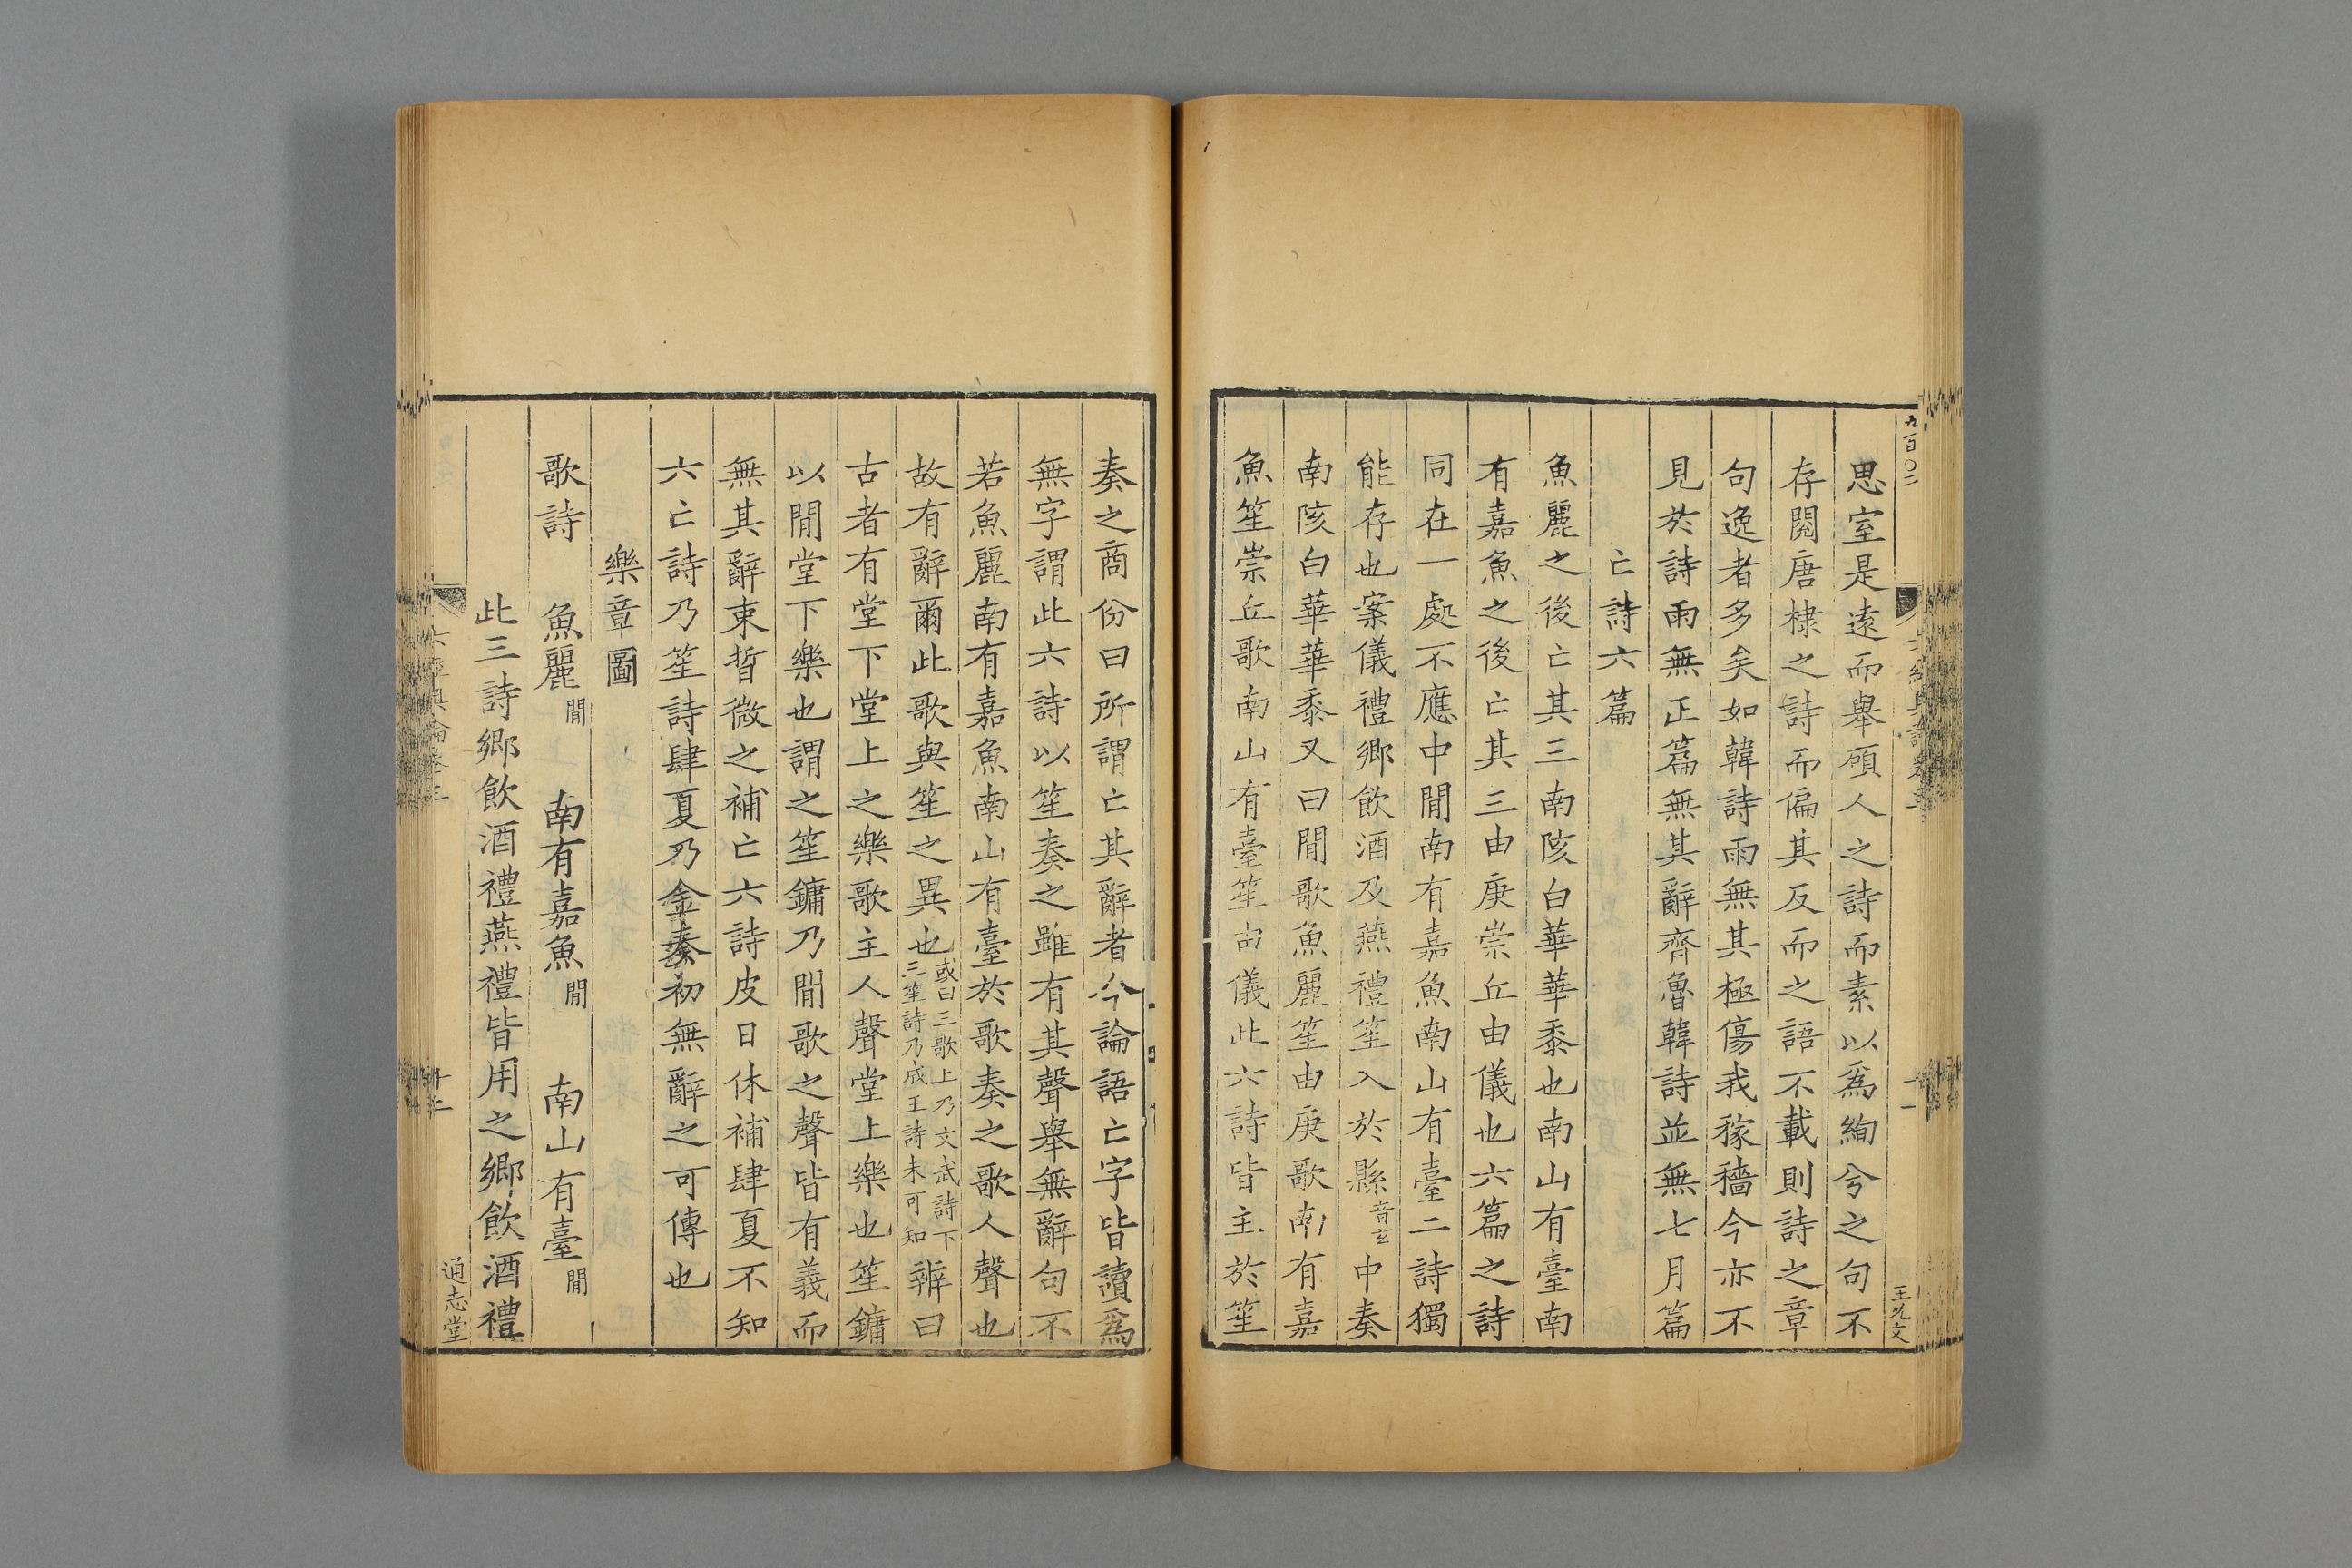 九百〇二
王先文
思室是遠而舉碩人之詩而素以爲絢兮之句不
存閱唐棣之詩而偏其反而之語不載則詩之章
句逸者多矣如韓詩雨無其極傷我稼穡今亦不
見於詩雨無正篇無其辭齊魯韓詩並無七月篇
亡詩六篇
魚麗之後亡其三南陔白華華黍也南山有臺南
有嘉魚之後亡其三由庚崇丘由儀也六篇之詩
同在一處不應中閒南有嘉魚南山有臺二詩獨
能存也案儀禮鄉飲酒及燕禮笙入於縣音玄中奏
南陔白華華黍又曰閒歌魚麗笙由庚歌南有嘉
魚笙崇丘歌南山有臺笙由儀此六詩皆主於笙
奏之商份曰所謂亡其辭者今論語亡字皆讀爲
無字謂此六詩以笙奏之雖有其聲舉無辭句不
若魚麗南有嘉魚南山有臺於歌奏之歌人聲也
故有辭爾此歌與笙之異也或曰三歌上乃文武詩下三笙詩乃成王詩未可知辨曰
古者有堂下堂上之樂歌主人聲堂上樂也笙鏞
以閒堂下樂也謂之笙鏞乃閒歌之聲皆有義而
無其辭束晳微之補亡六詩皮日休補肆夏不知
六亡詩乃笙詩肆夏乃金奏初無辭之可傳也
樂章圖
歌詩　魚麗閒　南有嘉魚閒　南山有臺閒
此三詩鄉飲酒禮燕禮皆用之鄉飲酒禮
六經奧論卷三
十一
通志堂